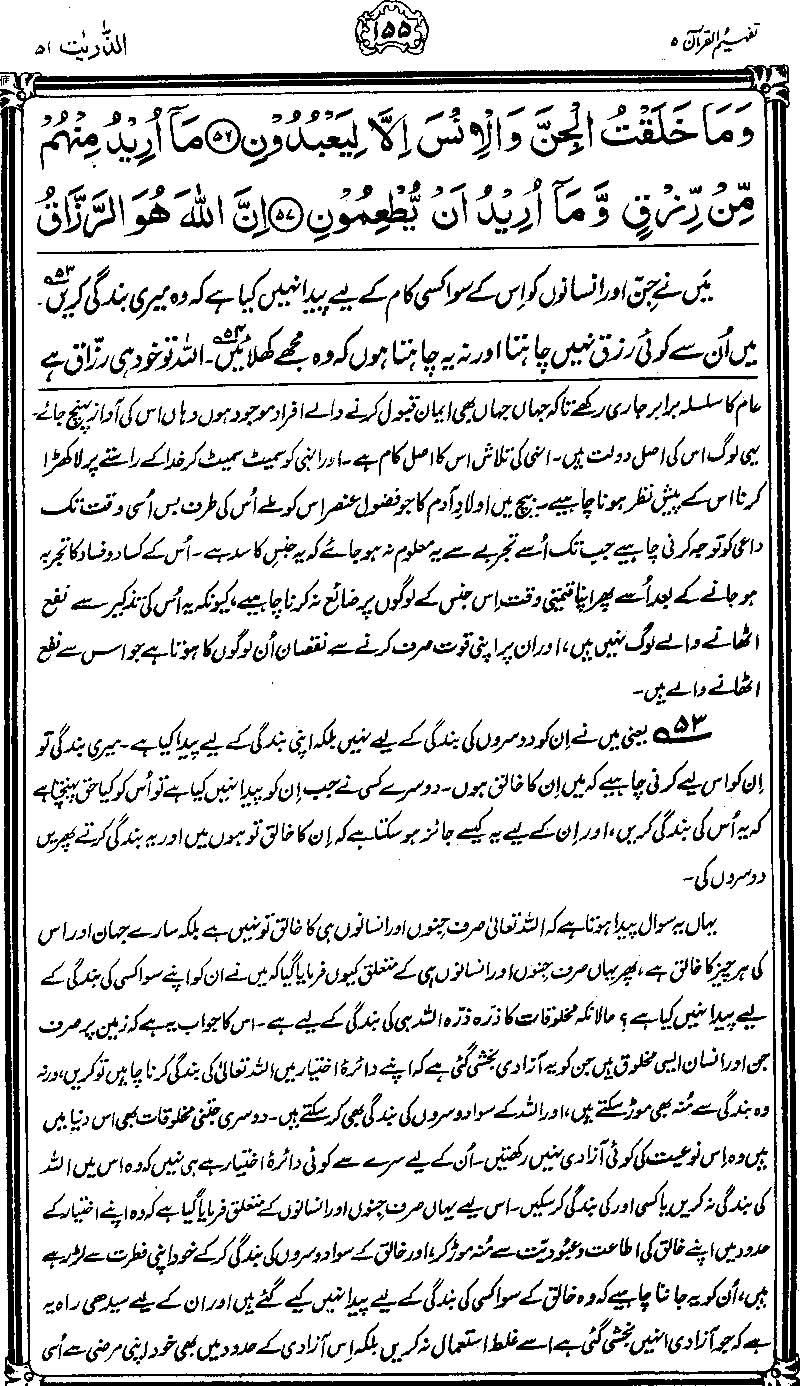 تفہیم القرآن ۵
۱۵۵
الذّٰریٰت ۵۱
وَمَا خَلَقْتُ الْجِنَّ وَالْاِنْسَ اِلَّا لِيَعْبُدُوْنِ ۵۶ مَآ اُرِيْدُ مِنْهُمْ
مِّنْ رِّزْقٍ وَّمَآ اُرِيْدُ اَنْ يُّطْعِمُوْنِ ۵۷ اِنَّ اللّٰهَ هُوَ الرَّزَّاقُ
میَں نے جِنّ اور انسانوں کو اِس کے سوا کسی کام کے لیے پیدا نہیں کیا ہے کہ وہ میری بندگی کریں۵۳۔
میں اُن سے کوئی رزق نہیں چاہتا اور نہ یہ چاہتا ہوں کہ وہ مجھے کھلائیں۵۴۔ اللہ تو خود ہی رزّاق ہے
عام کا سلسلہ برابر جاری رکھے تاکہ جہاں جہاں بھی ایمان قبول کرنے والے افراد موجود ہوں وہاں اس کی آواز پہنچ جائے۔
یہی لوگ اس کی اصل دولت ہیں۔ انہی کی تلاش اس کا اصل کام ہے۔ اور انہی کو سمیٹ سمیٹ کر خدا کے راستے پر لا کھڑا
کرنا اس کے پیش نظر ہونا چاہیے۔ بیچ میں اولادِ آدم کا جو فضول عنصر اس کو ملے اُس کی طرف بس اُسی وقت تک
داعی کو توجہ کرنی چاہیے جب تک اُسے تجربے سے یہ معلوم نہ ہو جائے کہ یہ جنس کاسد ہے۔ اُس کے کساد و فساد کا تجربہ
ہو جانے کے بعد اُسے پھر اپنا قیمتی وقت اِس جنس کے لوگوں پر ضائع نہ کرنا چاہیے، کیونکہ یہ اُس کی تذکیر سے نفع
اٹھانے والے لوگ نہیں ہیں، اور ان پر اپنی قوت صرف کرنے سے نقصان اُن لوگوں کا ہوتا ہے جو اس سے نفع
اٹھانے والے ہیں۔
۵۳ یعنی میں نے اِن کو دوسروں کی بندگی کے لیے نہیں بلکہ اپنی بندگی کے لیے پیدا کیا ہے۔ میری بندگی تو
اِن کو اس لیے کرنی چاہیے کہ میں اِن کا خالق ہوں۔ دوسرے کسی نے جب اِن کو پیدا نہیں کیا ہے تو اُس کو کیا حق پہنچتا ہے
کہ یہ اُس کی بندگی کریں، اور اِن کے لیے یہ کیسے جائز ہو سکتا ہے کہ اِن کا خالق تو ہوں میں اور یہ بندگی کرتے پھریں
دوسروں کی۔
یہاں یہ سوال پیدا ہوتا ہے کہ اللہ تعالیٰ صرف جِنوں اور انسانوں ہی کا خالق تو نہیں ہے بلکہ سارے جہان اور اس
کی ہر چیز کا خالق ہے، پھر یہاں صرف جنوں اور انسانوں ہی کے متعلق کیوں فرمایا گیا کہ میں نے ان کو اپنے سوا کسی کی بندگی کے
لیے پیدا نہیں کیا ہے؟ حالانکہ مخلوقات کا ذرہ ذرہ اللہ ہی کی بندگی کے لیے ہے۔ اس کا جواب یہ ہے کہ زمین پر صرف
جن اور انسان ایسی مخلوق ہیں جن کو یہ آزادی بخشی گئی ہے کہ اپنے دائرۂ اختیار میں اللہ تعالیٰ کی بندگی کرنا چاہیں تو کریں، ورنہ
وہ بندگی سے مُنہ بھی موڑ سکتے ہیں، اور اللہ کے سوا دوسروں کی بندگی بھی کر سکتے ہیں۔ دوسری جتنی مخلوقات بھی اس دنیا میں
ہیں وہ اِس نوعیت کی کوئی آزادی نہیں رکھتیں۔ اُن کے لیے سرے سے کوئی دائرۂ اختیار ہے ہی نہیں کہ وہ اس میں اللہ
کی بندگی نہ کریں یا کسی اور کی بندگی کر سکیں۔ اس لیے یہاں صرف جنوں اور انسانوں کے متعلق فرمایا گیا ہے کہ وہ اپنے اختیار کے
حدود میں اپنے خالق کی اطاعت و عبودیت سے مُنہ موڑ کر، اور خالق کے سوا دوسروں کی بندگی کر کے خود اپنی فطرت سے لڑ رہے
ہیں، اُن کو یہ جاننا چاہیے کہ وہ خالق کے سوا کسی کی بندگی کے لیے پیدا نہیں کیے گئے ہیں اور ان کے لیے سیدھی راہ یہ
ہے کہ جو آزادی انہیں بخشی گئی ہے اسے غلط استعمال نہ کریں بلکہ اِس آزادی کے حدود میں بھی خود اپنی مرضی سے اُسی